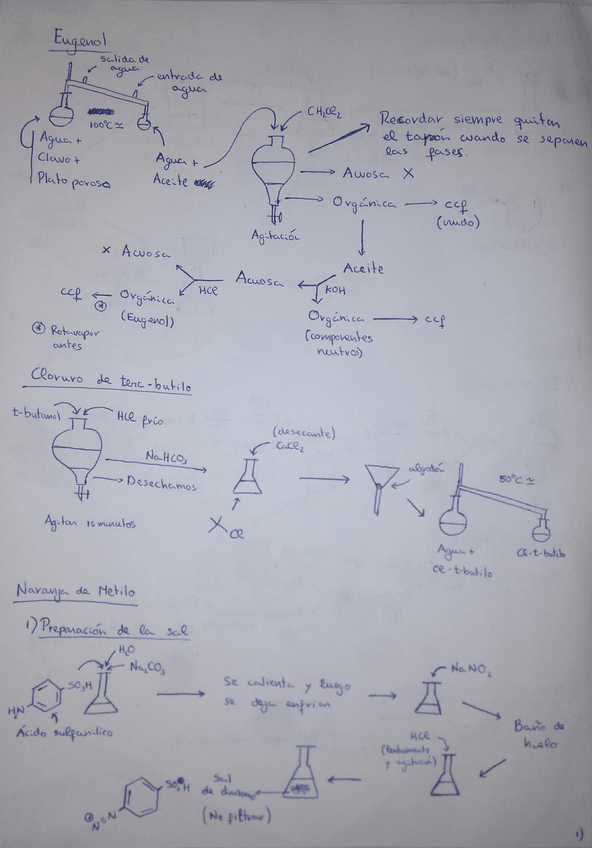 Eugenol
salida de
agua
entrada de
agua
100°C ≃
Agua +
Clavo +
Plato poroso
Agua +
Aceite
CH2Cl2
Recordar siempre quitar
el tapón cuando se separen
las fases.
Acuosa X
Orgánica → ccf
(crudo)
Agitación
Aceite
KOH
Acuosa
HCl
x Acuosa
ccf ← Orgánica
(Eugenol)
* Rotavapor
antes
Orgánica → ccf
(componentes
neutros)
Cloruro de terc-butilo
t-butanol
HCl frío
NaHCO3
Desechamos
Agitar 15 minutos
(desecante)
CaCl2
Cl
algodón
50°C ≃
Agua +
Cl-t-butilo
Cl-t-butilo
Naranja de Metilo
1) Preparación de la sal
H2O
Na2CO3
SO3H
H2N
Ácido sulfanílico
Se calienta y luego
se deja enfriar
NaNO2
Baño de
hielo
HCl
(lentamente
y agitación)
Sal
de diazonio
(No filtrar)
N≡N
1)